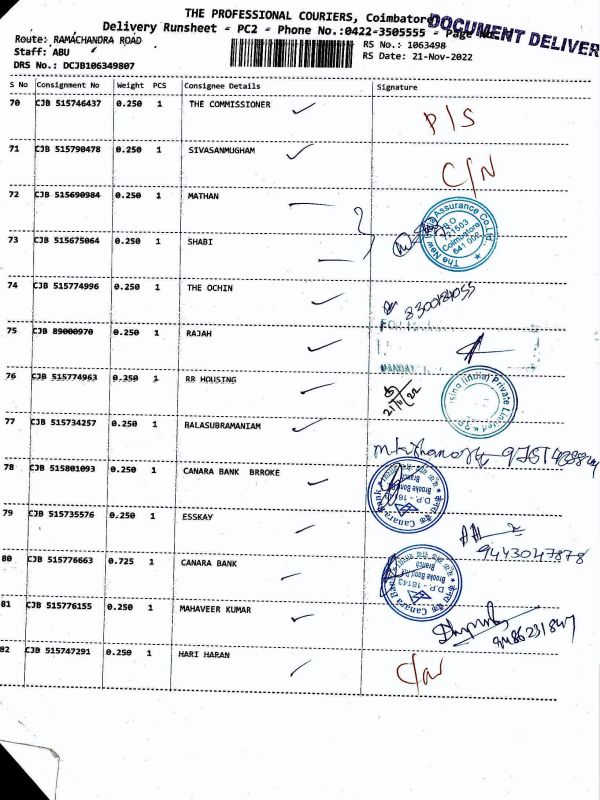 THE PROFESSIONAL COURIERS, Coimbatore
DOCUMENT DELIVER
Delivery Runsheet - PC2 - Phone No.:0422-3505555 - Page
Route: RAMACHANDRA ROAD
RS No.: 1063498
Staff: ABU
RS Date: 21-Nov-2022
DRS No.: DCJB106349807
S No Consignment No Weight PCS Consignee Details Signature
70 CJB 515746437 0.250 1 THE COMMISSIONER P/S
71 CJB 515790478 0.250 1 SIVASANMUGHAM C/N
72 CJB 515690984 0.250 1 MATHAN
The New India Assurance Co. Ltd.
Coimbatore
641 002
73 CJB 515675064 0.250 1 SHABI
74 CJB 515774996 0.250 1 THE OCHIN
75 CJB 89000970 0.250 1 RAJAH
76 CJB 515774963 0.250 1 RR HOUSING
21/11/22
(India) Private Limited
77 CJB 515734257 0.250 1 BALASUBRAMANIAM
78 CJB 515801093 0.250 1 CANARA BANK BRROKE
Canara Bank
79 CJB 515735576 0.250 1 ESSKAY
9443047878
80 CJB 515776663 0.725 1 CANARA BANK
Canara Bank
D.P. - 16143
Brooke Bond Rd
Branch
81 CJB 515776155 0.250 1 MAHAVEER KUMAR
82 CJB 515747291 0.250 1 HARI HARAN